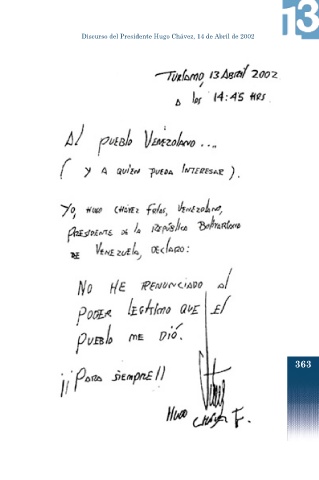 13
Discurso del Presidente Hugo Chávez. 14 de Abril de 2002
Turiamo, 13 Abril 2002
a las 14:45 HRS
Al pueblo Venezolano...
( y a quien pueda interesar ).
Yo, Hugo Chávez Frías, Venezolano,
Presidente de la República Bolivariana
de Venezuela, declaro:
No he renunciado al
poder legítimo que el
pueblo me dió.
¡¡Para siempre!!
363
Hugo Chávez F.